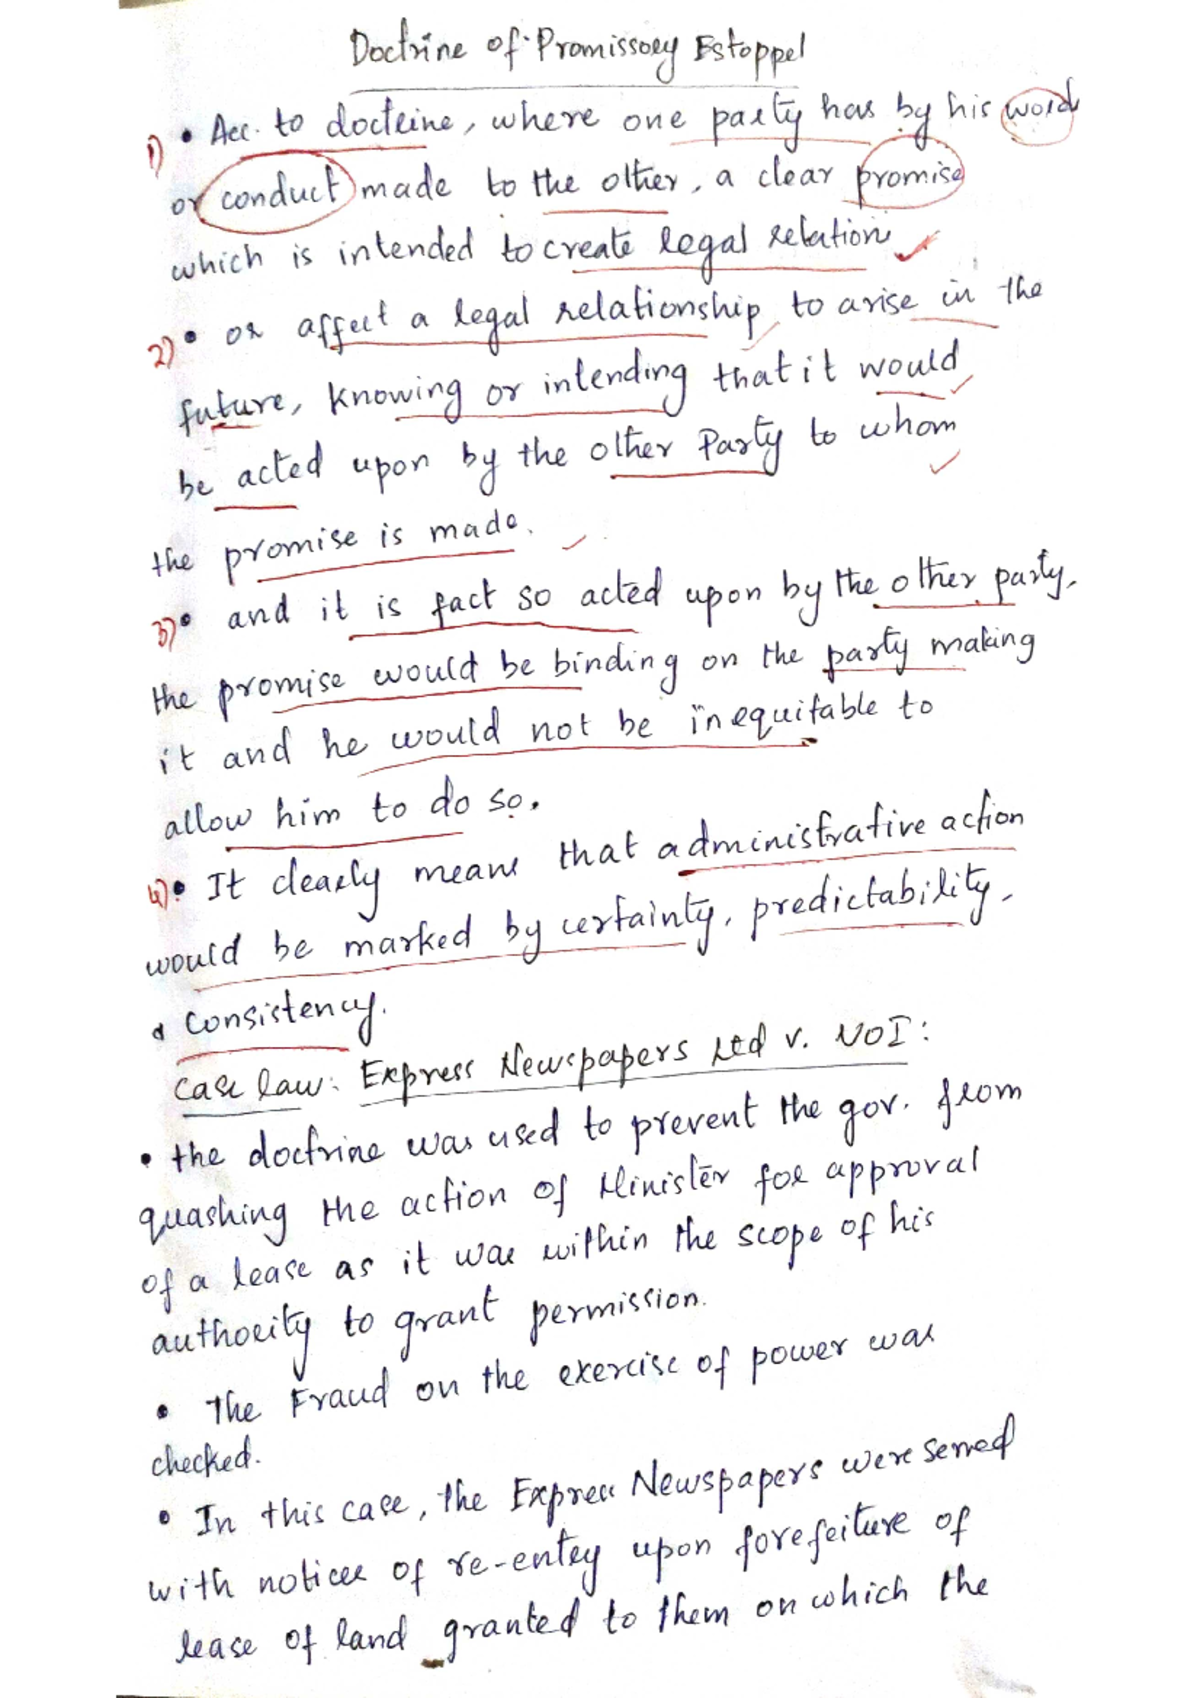 Doctrine of Promissory Estoppel
1) • Acc. to doctrine, where one party has by his word
or conduct made to the other, a clear promise
which is intended to create legal relation
2) • or affect a legal relationship, to arise in the
future, knowing or intending that it would
be acted upon by the other Party to whom
the promise is made.
3) • and it is fact so acted upon by the other party,
the promise would be binding on the party making
it and he would not be inequitable to
allow him to do so.
4) • It clearly means that administrative action
would be marked by certainty, predictability,
& Consistency.
Case law: Express Newspapers Ltd v. UOI:
• the doctrine was used to prevent the gov. from
quashing the action of Minister for approval
of a lease as it was within the scope of his
authority to grant permission.
• The Fraud on the exercise of power was
checked.
• In this case, the Express Newspapers were served
with notices of re-entry upon forefeiture of
lease of land granted to them on which the